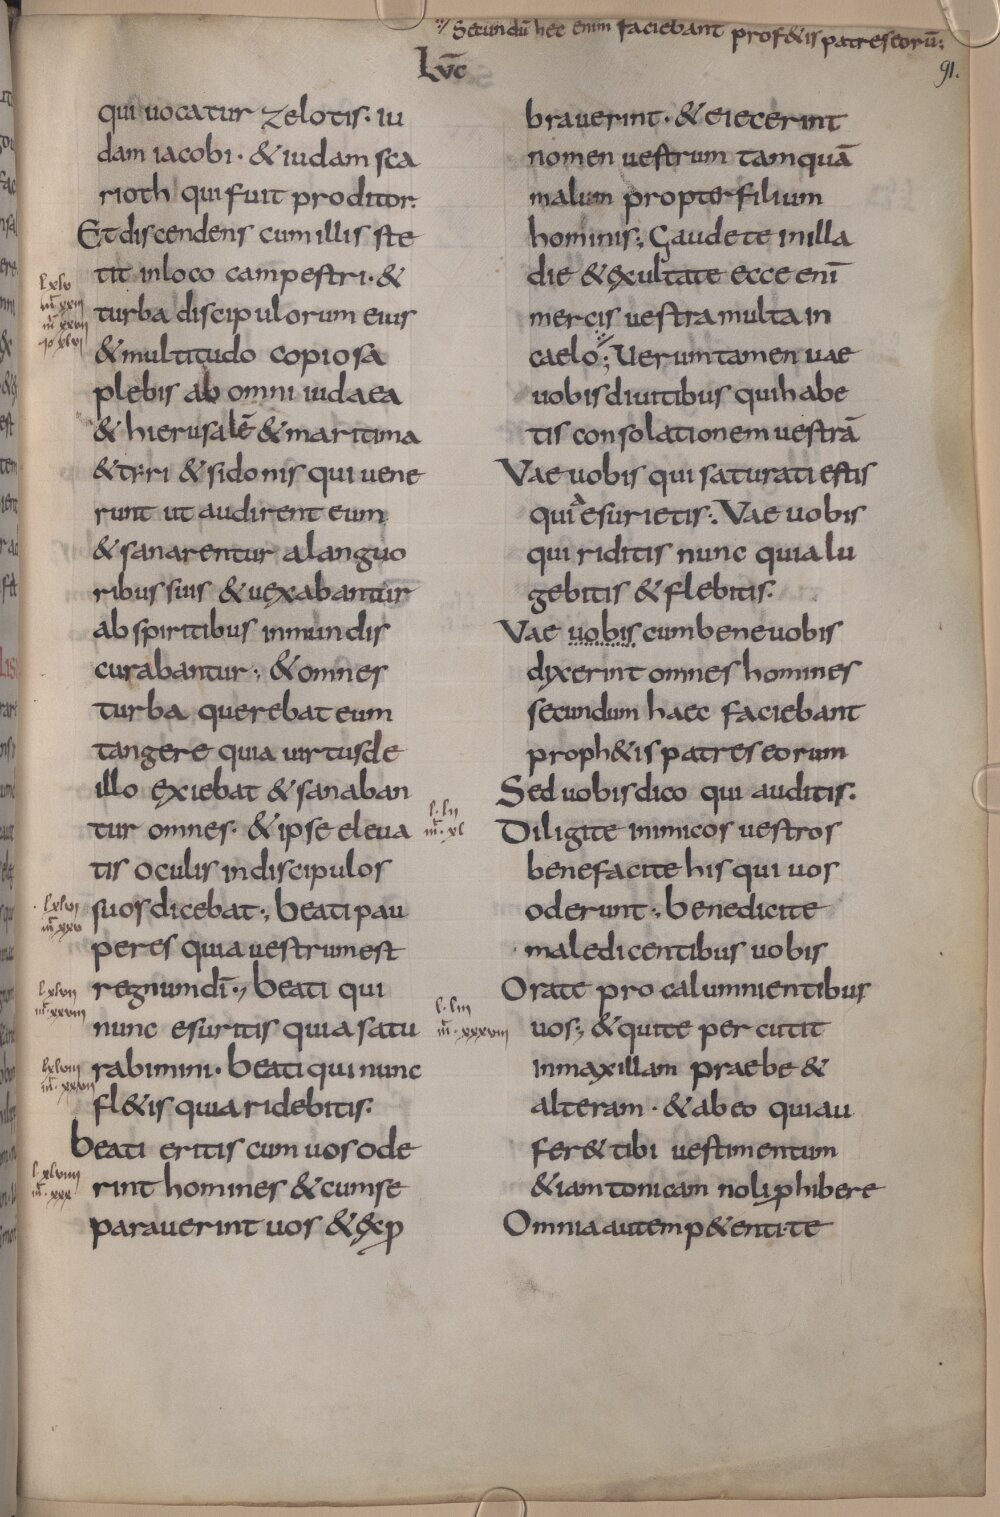 ·:/ Secundū hec enim faciebant prof&is patres eorū;
Lūc
91.
qui uocatur zelotis· iu
dam iacobi· & iudam sca
rioth qui fuit proditor.
Et discendens cum illis ste
tit in loco campestri· &
turba discipulorum eius
& multitudo copiosa
plebis ab omni iudaea
& hierusalē & maritima
& tyri & sidonis qui uene
runt ut audirent eum
& sanarentur a languo
ribus suis & uexabantur
ab spiritibus inmundis
curabantur; & omnes
turba querebat eum
tangere quia uirtus de
illo exiebat & sanaban
tur omnes· & ipse eleua
tis oculis in discipulos
suos dicebat; beati pau
peres quia uestrum est
regnum dī; beati qui
nunc esuritis quia satu
rabimini· beati qui nunc
fl&is quia ridebitis:
beati eritis cum uos ode
rint homines & cum se
parauerint uos & exp
l xlvi
m̄ xxv
l xlvii
m̄ xxvii
l xlviiii
m̄ xxx
brauerint· & eiecerint
nomen uestrum tamquā
malum propter filium
hominis; Gaudete in illa
die & exultate ecce enī
mercis uestra multa in
caelo; Uerumtamen uae
uobis diuitibus qui habe
tis consolationem uestrā
Vae uobis qui saturati estis
quia esurietis: Vae uobis
qui riditis nunc quia lu
gebitis & flebitis:
Vae uobis cum bene uobis
dixerint omnes homines
secundum haec faciebant
proph&is patres eorum
Sed uobis dico qui auditis:
Diligite inimicos uestros
benefacite his qui uos
oderunt; benedicite
maledicentibus uobis
Orate pro calumnientibus
uos; & qui te percutit
in maxillam praebe &
alteram· & ab eo qui au
fer& tibi uestimentum
& iam tonicam noli phibere
Omnia autem p&enti te
l· lii
m̄· xl
l· liii
m̄· xxxviii